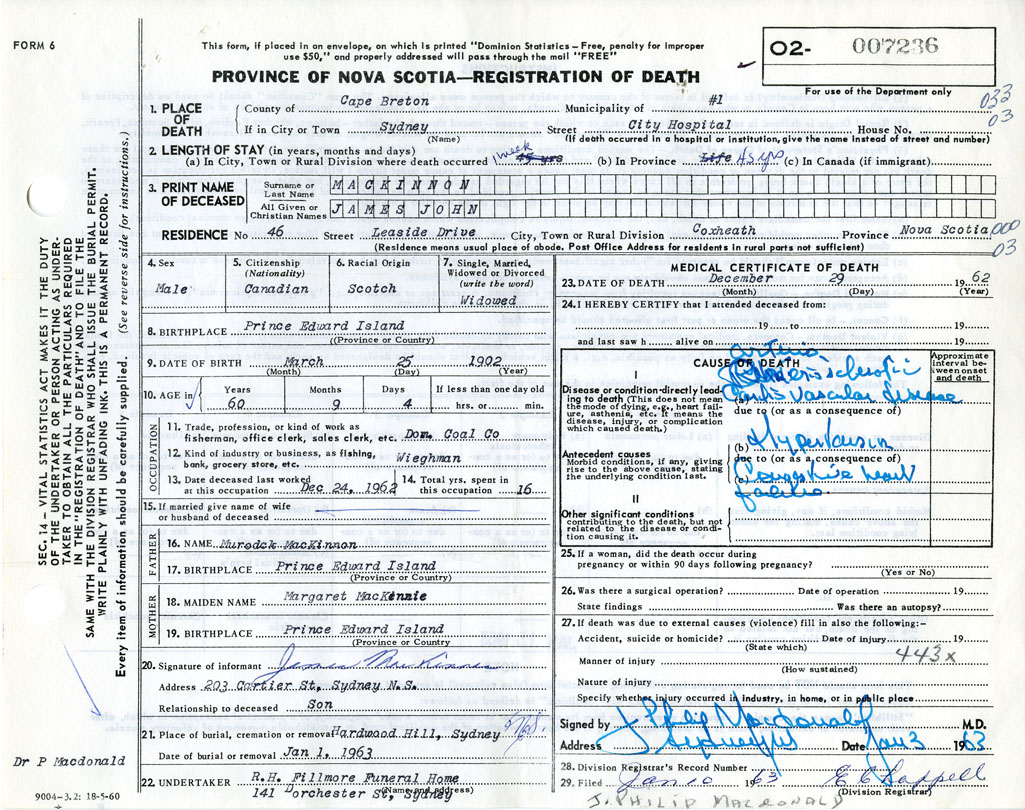 FORM 6
This form, if placed in an envelope, on which is printed "Dominion Statistics – Free, penalty for improper
use $50," and properly addressed will pass through the mail "FREE"
PROVINCE OF NOVA SCOTIA—REGISTRATION OF DEATH
O2- 007236
For use of the Department only
033
03
1. PLACE OF DEATH
County of Cape Breton Municipality of #1
If in City or Town Sydney Street City Hospital House No.
(Name) (If death occurred in a hospital or institution, give the name instead of street and number)
2. LENGTH OF STAY (in years, months and days)
(a) In City, Town or Rural Division where death occurred 1 week 45 yrs (b) In Province Life 45 yrs (c) In Canada (if immigrant)
3. PRINT NAME OF DECEASED
Surname or Last Name MACKINNON
All Given or Christian Names JAMES JOHN
RESIDENCE No 46 Street Leaside Drive City, Town or Rural Division Coxheath Province Nova Scotia
(Residence means usual place of abode. Post Office Address for residents in rural parts not sufficient)
000
03
4. Sex Male
5. Citizenship (Nationality) Canadian
6. Racial Origin Scotch
7. Single, Married, Widowed or Divorced (write the word) Widowed
8. BIRTHPLACE Prince Edward Island
((Province or Country)
9. DATE OF BIRTH March 25 1902
(Month) (Day) (Year)
10. AGE in Years 60 Months 9 Days 4 If less than one day old hrs. or min.
OCCUPATION
11. Trade, profession, or kind of work as
fisherman, office clerk, sales clerk, etc. Dom. Coal Co
12. Kind of industry or business, as fishing,
bank, grocery store, etc. Wieghman
13. Date deceased last worked
at this occupation Dec 24, 1962
14. Total yrs. spent in
this occupation 16
15. If married give name of wife
or husband of deceased
FATHER
16. NAME Murodck MacKinnon
17. BIRTHPLACE Prince Edward Island
(Province or Country)
MOTHER
18. MAIDEN NAME Margaret MacKinnie
19. BIRTHPLACE Prince Edward Island
(Province or Country)
20. Signature of informant James MacKinnon
Address 203 Cartier St, Sydney N.S.
Relationship to deceased Son
21. Place of burial, cremation or removal Hardwood Hill, Sydney
Date of burial or removal Jan 1. 1963
22. UNDERTAKER R.H. Fillmore Funeral Home
141 Dorchester St, Sydney
(Name and address)
MEDICAL CERTIFICATE OF DEATH
23. DATE OF DEATH December 29 1962
(Month) (Day) (Year)
24. I HEREBY CERTIFY that I attended deceased from:
19 to 19
and last saw h alive on 19
CAUSE OF DEATH
Approximate interval between onset and death
I
Disease or condition directly leading to death (This does not mean
the mode of dying, e.g., heart failure, asthenia, etc. It means the
disease, injury, or complication
which caused death.)
(a) arteriosclerotic
Cardio vascular disease
due to (or as a consequence of)
Antecedent causes
Morbid conditions, if any, giving
rise to the above cause, stating
the underlying condition last.
(b) Hypertension
due to (or as a consequence of)
(c) Congestive heart
failure
II
Other significant conditions
contributing to the death, but not
related to the disease or condition causing it.
25. If a woman, did the death occur during
pregnancy or within 90 days following pregnancy?
(Yes or No)
26. Was there a surgical operation? Date of operation 19
State findings Was there an autopsy?
27. If death was due to external causes (violence) fill in also the following:-
Accident, suicide or homicide? Date of injury 19
(State which)
443x
Manner of injury
(How sustained)
Nature of injury
Specify whether injury occurred in industry, in home, or in public place
Signed by J. Philip Macdonald M.D.
Address Sydney NS Date Jan 3 1963
28. Division Registrar's Record Number
29. Filed 1963
(Division Registrar)
J. PHILIP MACDONALD
SEC. 14 – VITAL STATISTICS ACT MAKES IT THE DUTY
OF THE UNDERTAKER OR PERSON ACTING AS UNDERTAKER TO OBTAIN ALL THE PARTICULARS REQUIRED
IN THE "REGISTRATION OF DEATH" AND TO FILE THE
SAME WITH THE DIVISION REGISTRAR WHO SHALL ISSUE THE BURIAL PERMIT.
WRITE PLAINLY WITH UNFADING INK. THIS IS A PERMANENT RECORD.
Every item of information should be carefully supplied. (See reverse side for instructions.)
Dr P Macdonald
9004-3.2: 18-5-60